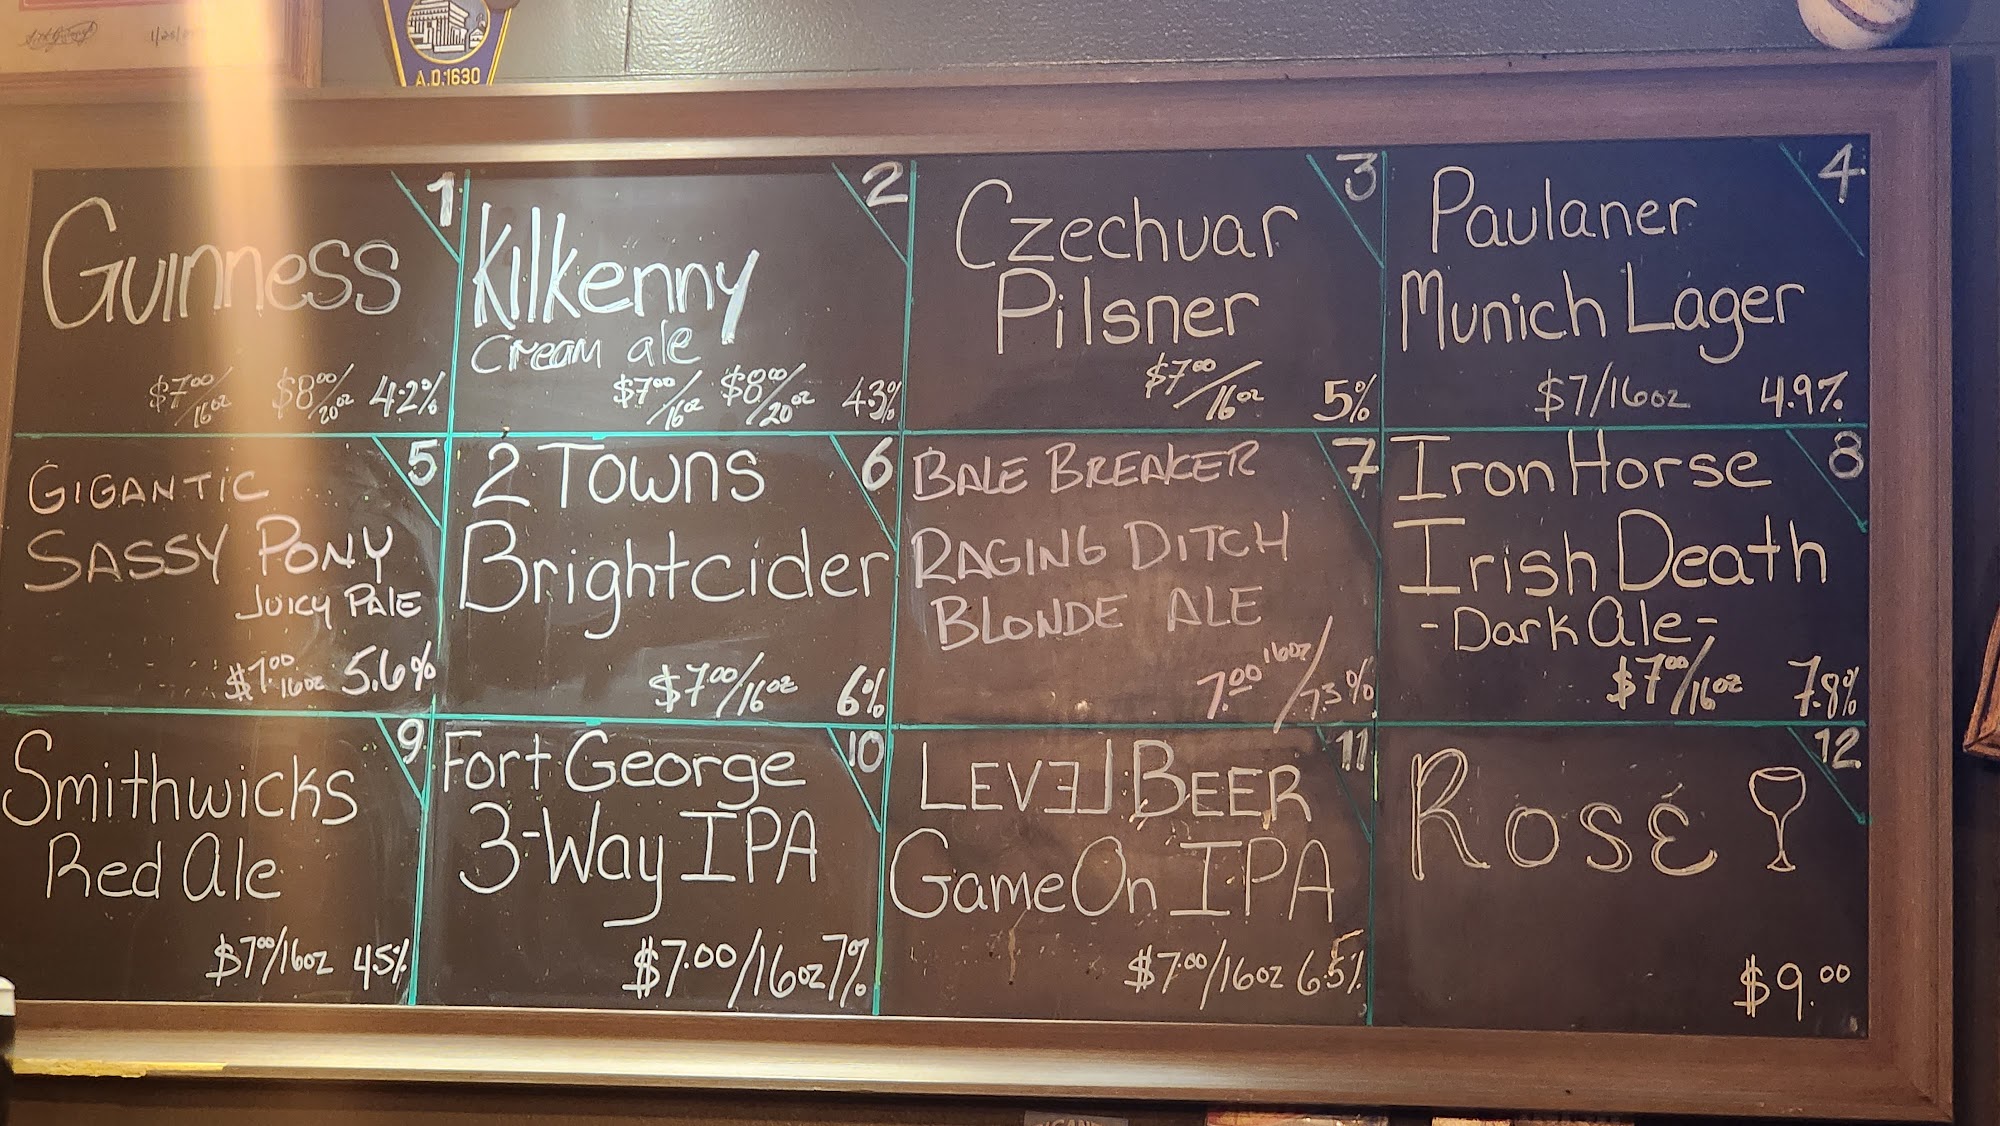 A.D.1630
1
Guinness
$7.00/16oz $8.00/20oz 4.2%
2
Kilkenny
Cream ale
$7.00/16oz $8.00/20oz 4.3%
3
Czechvar
Pilsner
$7.00/16oz 5%
4
Paulaner
Munich Lager
$7/16oz 4.9%
5
GIGANTIC
SASSY PONY
JUICY PALE
$7.00 16oz 5.6%
6
2 Towns
Brightcider
$7.00/16oz 6%
7
BALE BREAKER
RAGING DITCH
BLONDE ALE
7.00 16oz/7.3%
8
Iron Horse
Irish Death
-Dark Ale-
$7.00/16oz 7.8%
9
Smithwicks
Red Ale
$7.00/16oz 4.5%
10
Fort George
3-Way IPA
$7.00/16oz 7%
11
LEVEL BEER
Game On IPA
$7.00/16oz 6.5%
12
Rosé
$9.00